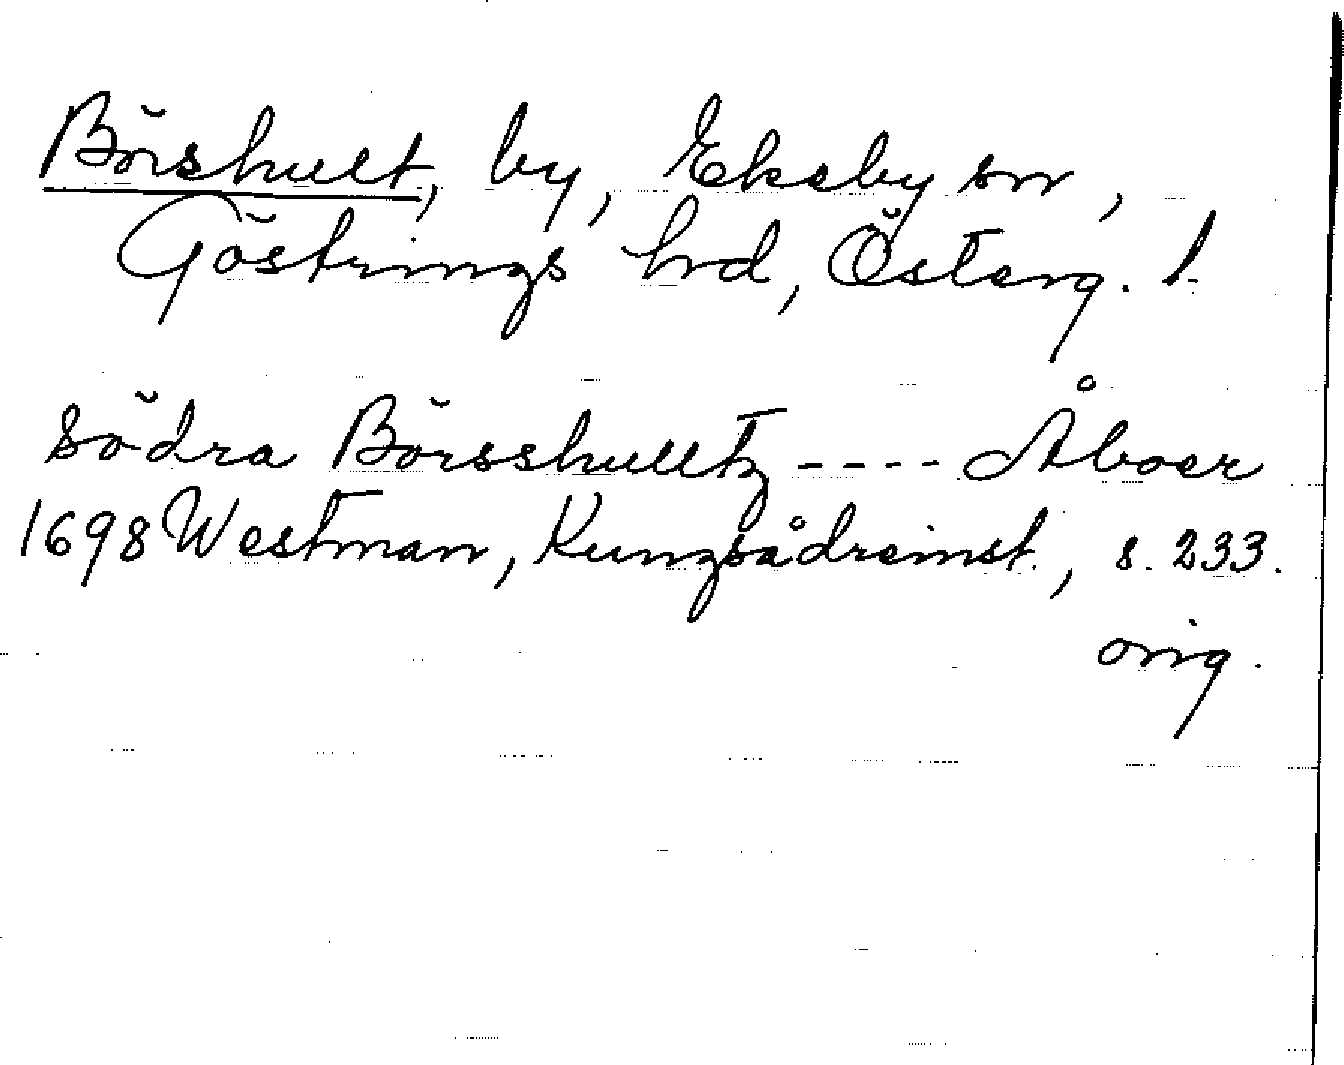 Börshult, by, Eksby sn,
Göstrings hrd, Österg. l.
Södra Börsshulltz ---- Åboer
1698 Westman, Kungsådreinst., s. 233.
orig.